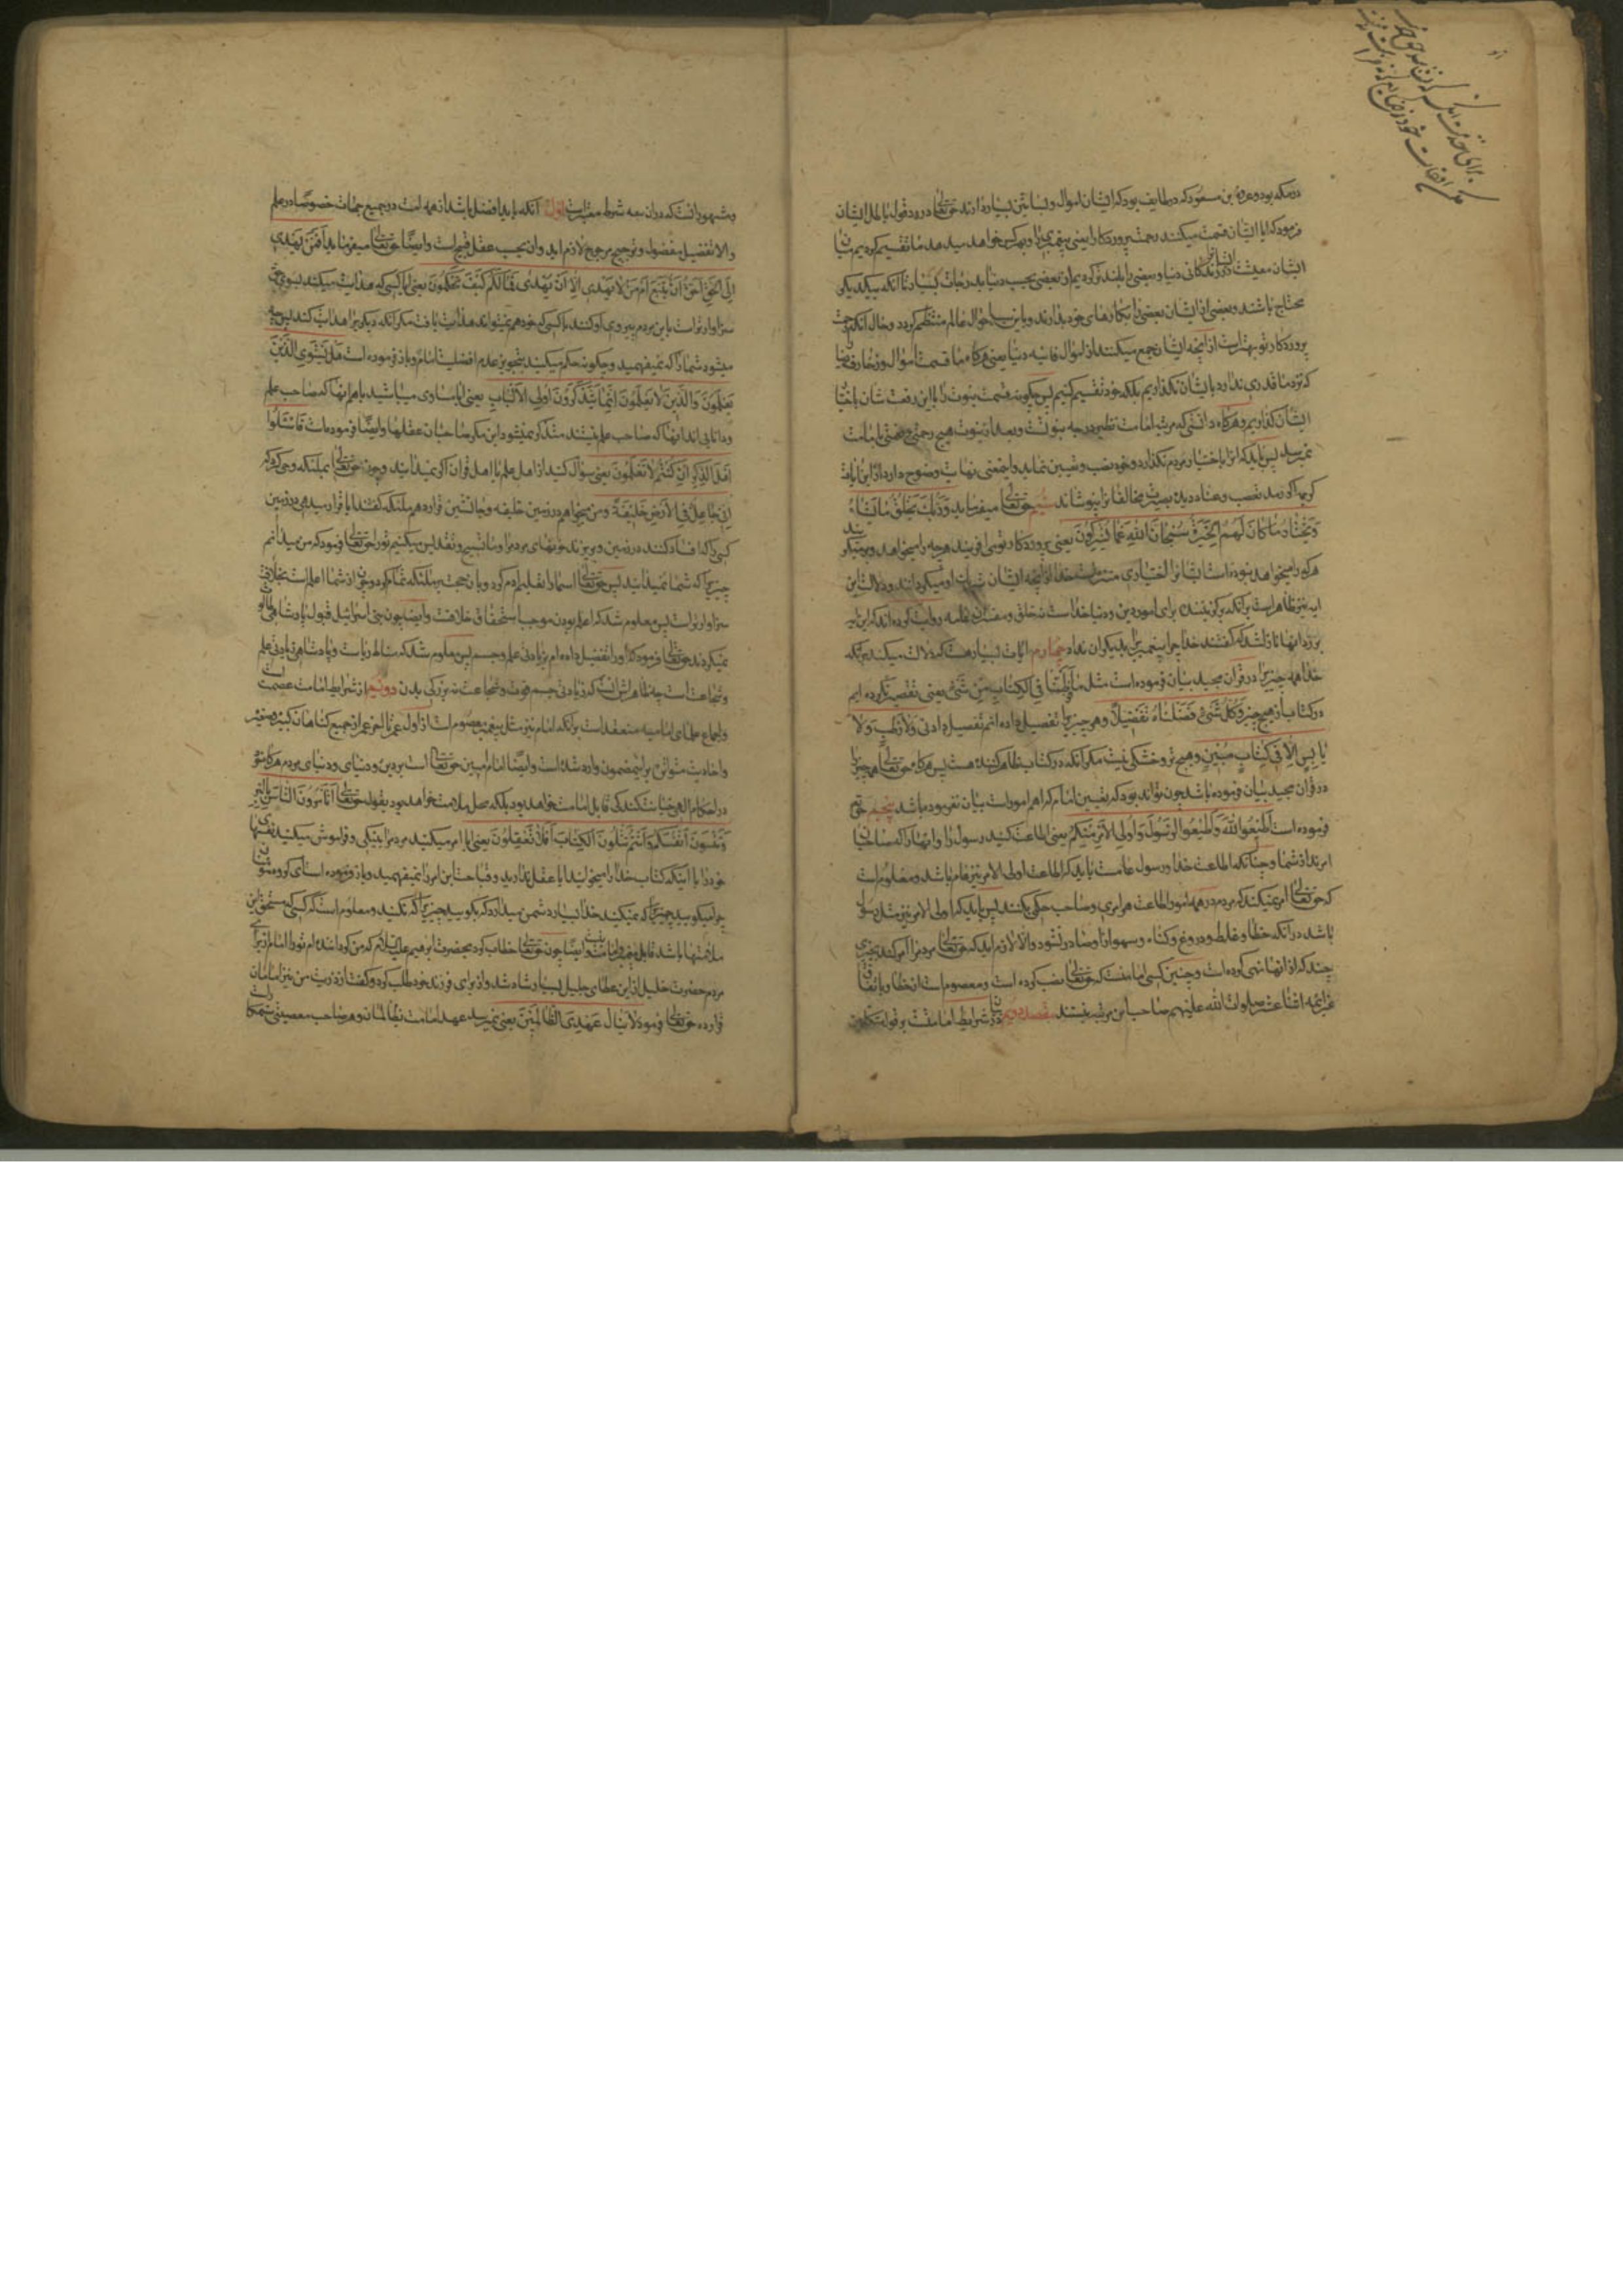 در مکه بود و عروة بن مسعود که در طایف بود که ایشان اموال و بساتین بسیار دارند حق تعالی در رد قول باطل ایشان
فرمود که ایا ایشان قسمت میکنند رحمت پروردکار ترا یعنی پیغمبری را و بهر کس خواهد میدهد ما تقسیم کرده‌ایم میان
ایشان معیشت ایشانرا در زندکانی دنیا و بعضی را بلند کرده‌ایم از بعضی بحسب دنیا بدرجات بسیار تا انکه بیکدیکر
محتاج باشند و بعضی از ایشان بعضی را بکارهای خود بدارند و باین سبب احوال عالم منتظم کردد و حال انکه رحمت
پروردکار تو بهتر است از انچه ایشان جمع میکنند از اموال فانیه دنیا یعنی هرکاه ما قسمت اموال و زخارف دنیا را
که نزد ما قدری ندارد بایشان نکذاریم بلکه خود تقسیم کنیم پس چکونه قسمت نبوت را با این رفعت شان باختیار
ایشان کذاریم و هرکاه دانستی که مرتبه امامت نظیر درجه نبوتست و بعد از نبوت هیچ رحمتی و نعمتی بامامت
نمیرسد پس باید که انرا باختیار مردم نکذارد و خود نصب و تعیین نماید و این معنی نهایت وضوح دارد
کوبها کرمد تعصب و عناد دیده بصیرت مخالفانرا بپوشاند سیم حق تعالی میفرماید وَرَبُّكَ يَخْلُقُ مَا يَشَاءُ
وَيَخْتَارُ مَا كَانَ لَهُمُ الْخِيَرَةُ سُبْحَانَ اللَّهِ عَمَّا يُشْرِكُونَ یعنی پروردکار تو می‌افریند هرچه را میخواهد و برمیکزیند
هرکه را میخواهد نبوده است ایشانرا اختیاری منزه است خدا از انچه ایشان شریک او میکردانند و دلالت این
ایه نیز ظاهر است برانکه برکزیننده برای امور دین و دنیا خداست نه خلق و مفسران عامه روایت کرده‌اند که این ایه
بر رد انها نازل شد که کفتند خدا چرا پیغمبری را بدیکران نداد چهارم ایات بسیار هست که دلالت میکند برانکه
خدا همه چیز را در قران مجید بیان فرموده است مثل مَا فَرَّطْنَا فِي الْكِتَابِ مِنْ شَيْءٍ یعنی تقصیر نکرده‌ایم
در کتاب از هیچ چیز وَكُلَّ شَيْءٍ فَصَّلْنَاهُ تَفْصِيلًا و هر چیز را تفصیل داده‌ایم تفصیل دادنی وَلَا رَطْبٍ وَلَا
يَابِسٍ إِلَّا فِي كِتَابٍ مُبِينٍ و هیچ تر و خشکی نیست مکر انکه در کتاب ظاهر کننده هست پس هرکاه حق تعالی همه چیز را
در قران مجید بیان فرموده باشد چون تواند بود که تعیین امام که اهم امور است بیان نفرموده باشد پنجم حق تعالی
فرموده است أَطِيعُوا اللَّهَ وَأَطِيعُوا الرَّسُولَ وَأُولِي الْأَمْرِ مِنْكُمْ یعنی اطاعت کنید رسول را و انها را که صاحبان
امرند از شما و چنانکه اطاعت خدا و رسول عامست باید که اطاعت اولی الامر نیز عام باشد و معلومست
که حق تعالی امر نمیکند که مردم در همه امور اطاعت هر امری و صاحب حکمی بکنند پس باید که اولی الامر نیز مثل رسول
باشد در انکه خطا و غلط و دروغ و کناه و سهو از او صادر نشود و الا لازم اید که حق تعالی مردم را امر کند بچیزی
چند که از انها نهی کرده است و چنین کسی امامست که حق تعالی نصب کرده است و معصوم است از خطا و باتفاق
غیر ائمه اثنا عشر صلوات الله علیهم صاحب این مرتبه نیستند مقصد دویم در شرایط امامتست
و مشهور انست که در ان سه شرط معتبر است اول انکه باید افضل باشد از همه امت در جمیع جهات خصوصا در علم
و الا تفضیل مفضول و ترجیح مرجوح لازم اید و ان بحسب عقل قبیح است و ایضا حق تعالی میفرماید أَفَمَنْ يَهْدِي
إِلَى الْحَقِّ أَحَقُّ أَنْ يُتَّبَعَ أَمَّنْ لَا يَهِدِّي إِلَّا أَنْ يُهْدَى فَمَا لَكُمْ كَيْفَ تَحْكُمُونَ یعنی ایا کسی که هدایت میکند بسوی حق
سزاوارتر است باین مردم پیروی او کنند یا کسی که خود هم نمیتواند هدایت یافت مکر انکه دیکری را هدایت کند پس چه
میشود شما را که نمیفهمید و چکونه حکم میکنید بتجویز عدم افضلیت امام و باز فرموده است هَلْ يَسْتَوِي الَّذِينَ
يَعْلَمُونَ وَالَّذِينَ لَا يَعْلَمُونَ إِنَّمَا يَتَذَكَّرُ أُولُو الْأَلْبَابِ یعنی ایا مساوی میباشند باهم انها که صاحب علم
و دانایی‌اند انها که صاحب علم نیستند متذکر نمیشود این مکر صاحبان عقلها و ایضا فرموده است فَاسْأَلُوا
أَهْلَ الذِّكْرِ إِنْ كُنْتُمْ لَا تَعْلَمُونَ یعنی سؤال کنید از اهل علم یا اهل قران اکر نمیدانید و چون حق تعالی بملئکه وحی کرد که
إِنِّي جَاعِلٌ فِي الْأَرْضِ خَلِيفَةً و من میخواهم در زمین خلیفه و جانشین قرار دهم ملئکه کفتند ایا قرار میدهی در زمین
کسی را که افساد کند در زمین و بریزد خونهای مردم را و ما تسبیح و تقدیس میکنیم تو را حق تعالی فرمود که من میدانم
چیزی را که شما نمیدانید پس حق تعالی اسما را تعلیم ادم کرد و بان حجت بر ملئکه تمام کرد و چون از شما اعلم است بخلافت
سزاوارتر است پس معلوم شد که اعلم بودن موجب استحقاق خلافت و ایضا چون بنی اسرائیل قبول پادشاهی طالوت
نمیکردند حق تعالی فرمود که او را تفضیل داده‌ام بزیادتی علم و جسم پس معلوم شد که مناط ریاست و پادشاهی زیادتی علم
و شجاعت است چه ظاهر انست که زیادتی جسم قوت و شجاعت نه بزرکی بدن دویم از شرایط امامت عصمت است
و اجماع علمای امامیه منعقد است برانکه امام نیز مثل پیغمبر معصوم است از اول عمر تا اخر عمر از جمیع کناهان کبیره و صغیره
و احادیث متواتره بر این مضمون وارد شده است و ایضا امام امین حق تعالی است بر دین و دنیای مردم هرکاه خود
در احکام الهی خیانت کند کی قابل امامت خواهد بود بلکه محل ملامت خواهد بود بقوله تعالی أَتَأْمُرُونَ النَّاسَ بِالْبِرِّ
وَتَنْسَوْنَ أَنْفُسَكُمْ وَأَنْتُمْ تَتْلُونَ الْكِتَابَ أَفَلَا تَعْقِلُونَ یعنی ایا امر میکنید مردم را بنیکی و فراموش میکنید نفسهای
خود را با اینکه کتاب خدا را میخوانید ایا عقل ندارید و قباحت این امر را نمیفهمید و باز فرموده است ای کروه مؤمنان
چرا میکویید چیزی را که نمیکنید خدا بسیار دشمن میدارد که بکویید چیزی را که نکنید و معلوم است که کسی که مستحق این
ملامتها باشد قابل پیغمبری و امامت نیست و ایضا چون حق تعالی خطاب کرد بحضرت ابرهیم علیه السلام که من کرداننده‌ام تو را امام از برای
مردم حضرت خلیل از این عطای جلیل بسیار شاد شد و از برای فرزند خود طلب کرد و کفت از ذریت من نیز امامان
قرار ده حق تعالی فرمود لَا يَنَالُ عَهْدِي الظَّالِمِينَ یعنی نمیرسد عهد امامت بظالمان و هر صاحب معصیتی ستمکار است